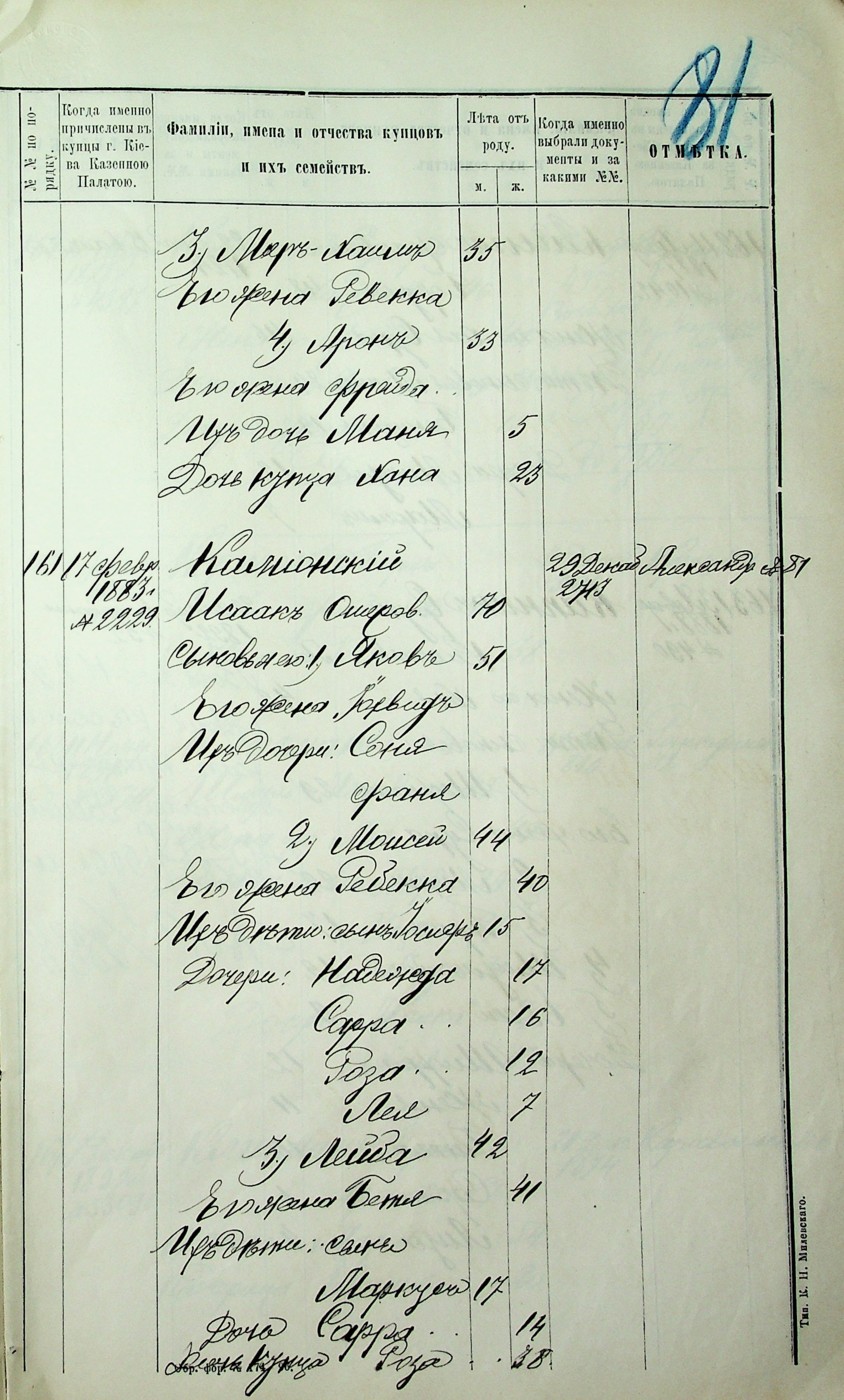 81
№№ по порядку.
Когда именно причислены въ купцы г. Кіева Казенною Палатою.
Фамиліи, имена и отчества купцовъ и ихъ семействъ.
Лѣта отъ роду.
м.
ж.
Когда именно выбрали документы и за какими №№.
ОТМѢТКА.
3) Меръ-Хаимъ 35
Его жена Ревекка
4) Аронъ 33
Его жена Фрейда
Ихъ дочь Маня 5
Дочь купца Хана 23
161 17 февр. Каміонскій 29 Декаб Александр № 81
1883 г. 2743
№ 2229 Исаакъ Ошеров. 70
Сыновья его: 1) Яковъ 51
Его жена
Ихъ дочери: Соня
Фаня
2) Моисей 44
Его жена Ревекка 40
Ихъ дѣти: сынъ Іосифъ 15
Дочери: Надежда 17
Сарра 16
Роза 12
Лея 7
3) Лейба 42
Его жена Бетя 41
Ихъ дѣти: сынъ
Маркусъ 17
Дочь Сарра 14
Дочь купца Роза 38
Тип. К. Н. Милевскаго.